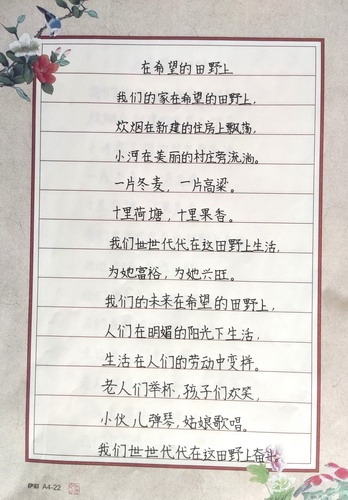 在希望的田野上
我们的家在希望的田野上,
炊烟在新建的住房上飘荡,
小河在美丽的村庄旁流淌。
一片冬麦,一片高梁。
十里荷塘,十里果香。
我们世世代代在这田野上生活,
为她富裕,为她兴旺。
我们的未来在希望的田野上,
人们在明媚的阳光下生活,
生活在人们的劳动中变样。
老人们举杯,孩子们欢笑,
小伙儿弹琴,姑娘歌唱。
我们世世代代在这田野上奋斗
A4-22